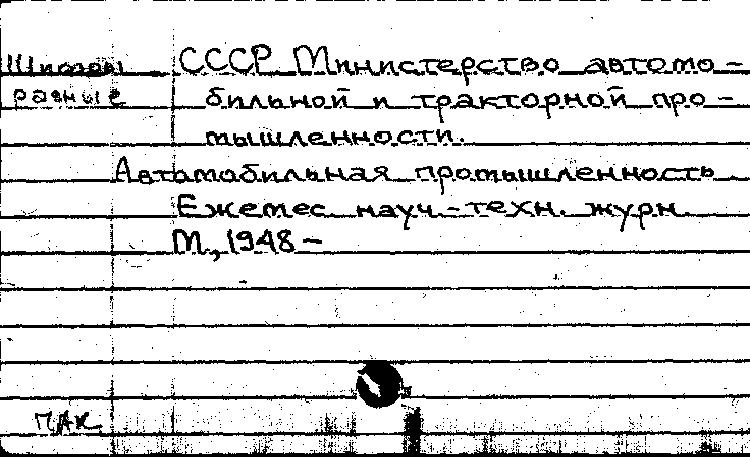 Шифры СССР Министерство автомо-
разные бильной и тракторной про-
мышленности.
Автомобильная промышленность
Ежемес. науч.-техн. журн.
М., 1948-
ПАК